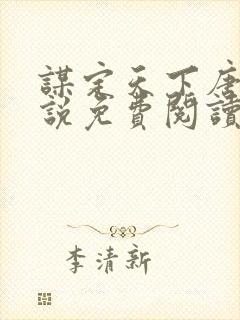 謀定天下唐
說免費閱讀
李清新